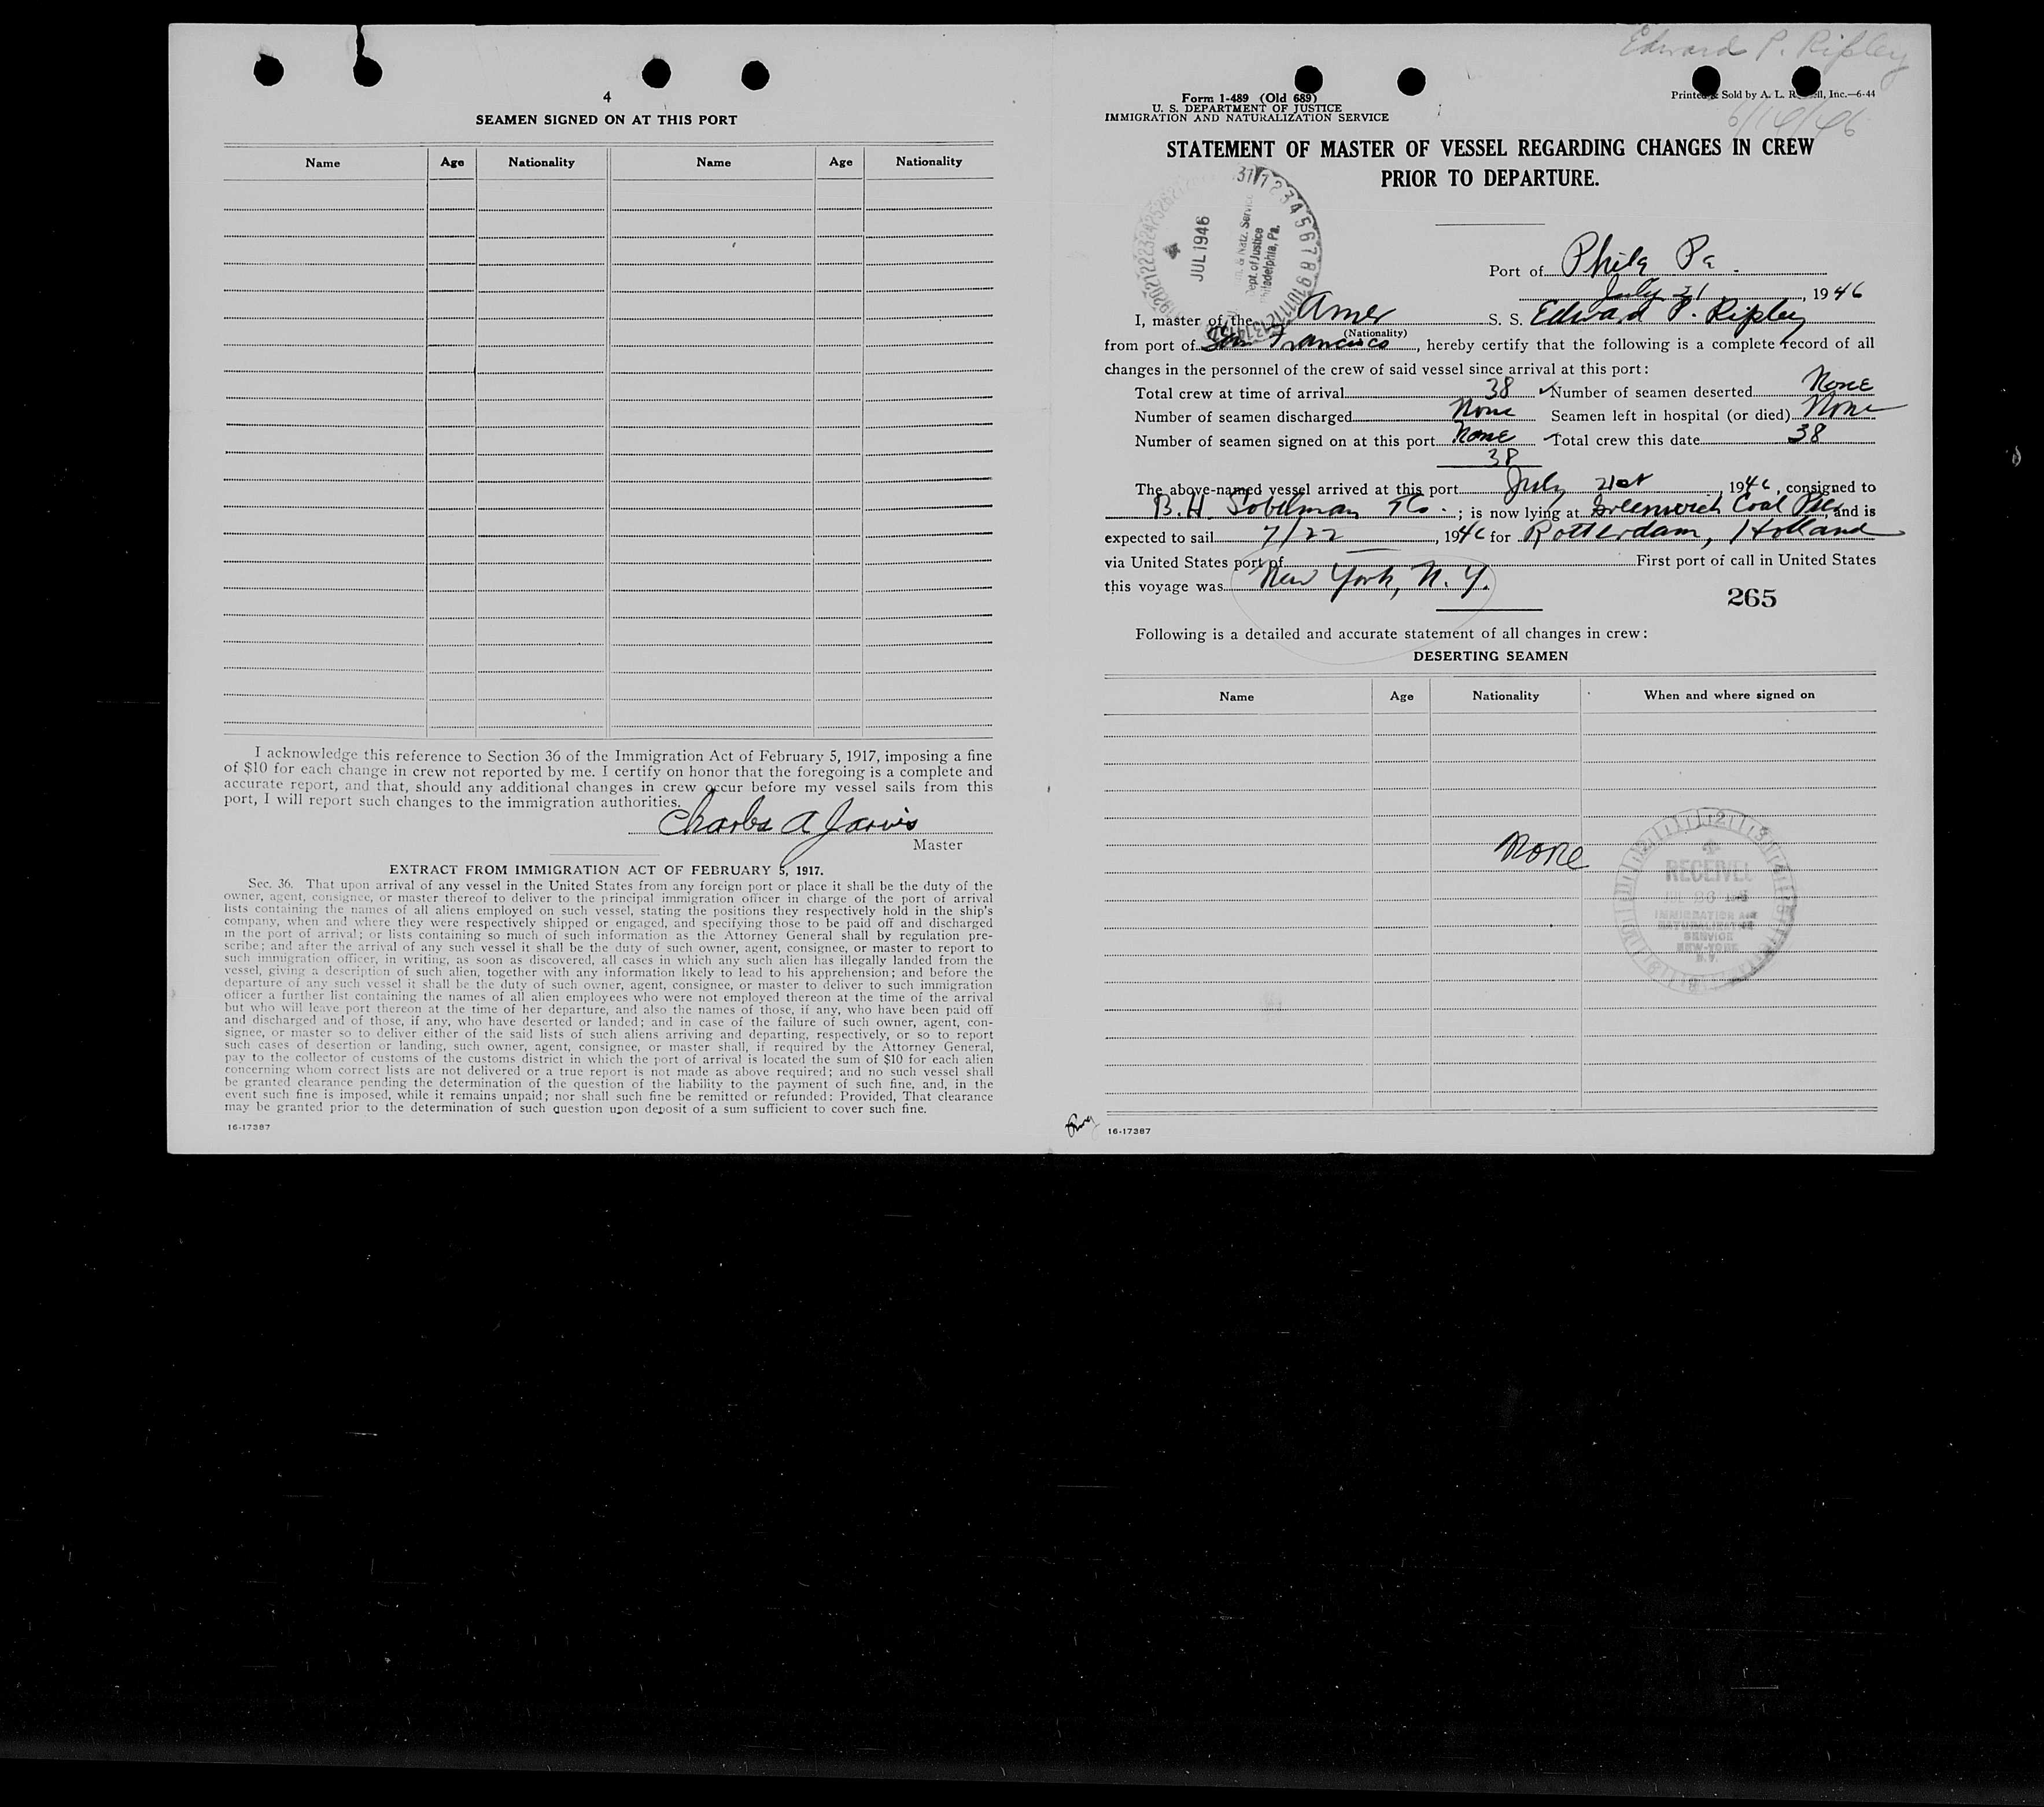 4
SEAMEN SIGNED ON AT THIS PORT
Name Age Nationality Name Age Nationality
I acknowledge this reference to Section 36 of the Immigration Act of February 5, 1917, imposing a fine
of $10 for each change in crew not reported by me. I certify on honor that the foregoing is a complete and
accurate report, and that, should any additional changes in crew occur before my vessel sails from this
port, I will report such changes to the immigration authorities.
Charles A Jarvis
Master
EXTRACT FROM IMMIGRATION ACT OF FEBRUARY 5, 1917.
Sec. 36. That upon arrival of any vessel in the United States from any foreign port or place it shall be the duty of the
owner, agent, consignee, or master thereof to deliver to the principal immigration officer in charge of the port of arrival
lists containing the names of all aliens employed on such vessel, stating the positions they respectively hold in the ship's
company, when and where they were respectively shipped or engaged, and specifying those to be paid off and discharged
in the port of arrival; or lists containing so much of such information as the Attorney General shall by regulation pre-
scribe; and after the arrival of any such vessel it shall be the duty of such owner, agent, consignee, or master to report to
such immigration officer, in writing, as soon as discovered, all cases in which any such alien has illegally landed from the
vessel, giving a description of such alien, together with any information likely to lead to his apprehension; and before the
departure of any such vessel it shall be the duty of such owner, agent, consignee, or master to deliver to such immigration
officer a further list containing the names of all alien employees who were not employed thereon at the time of the arrival
but who will leave port thereon at the time of her departure, and also the names of those, if any, who have been paid off
and discharged and of those, if any, who have deserted or landed; and in case of the failure of such owner, agent, con-
signee, or master so to deliver either of the said lists of such aliens arriving and departing, respectively, or so to report
such cases of desertion or landing, such owner, agent, consignee, or master shall, if required by the Attorney General,
pay to the collector of customs of the customs district in which the port of arrival is located the sum of $10 for each alien
concerning whom correct lists are not delivered or a true report is not made as above required; and no such vessel shall
be granted clearance pending the determination of the question of the liability to the payment of such fine, and, in the
event such fine is imposed, while it remains unpaid; nor shall such fine be remitted or refunded: Provided, That clearance
may be granted prior to the determination of such question upon deposit of a sum sufficient to cover such fine.
16-17387
Edward P. Ripley
Form 1-489 (Old 689)
U. S. DEPARTMENT OF JUSTICE
IMMIGRATION AND NATURALIZATION SERVICE
Printed & Sold by A. L. Inc.—6-44
STATEMENT OF MASTER OF VESSEL REGARDING CHANGES IN CREW
PRIOR TO DEPARTURE.
JUL 1946
& Natz. Service
Dept. of Justice
Philadelphia, Pa.
Port of Phila Pa.
July 21, 1946
I, master of the Amer S. S. Edward P. Ripley
(Nationality)
from port of San Francisco, hereby certify that the following is a complete record of all
changes in the personnel of the crew of said vessel since arrival at this port:
Total crew at time of arrival 38 Number of seamen deserted None
Number of seamen discharged None Seamen left in hospital (or died) None
Number of seamen signed on at this port None Total crew this date 38
38
The above-named vessel arrived at this port July 21st, 1946, consigned to
B. H. Sobelman & Co.; is now lying at Greenwich Coal Pier, and is
expected to sail 7/22, 1946 for Rotterdam, Holland
via United States port of — First port of call in United States
this voyage was New York, N. Y.
265
Following is a detailed and accurate statement of all changes in crew:
DESERTING SEAMEN
Name Age Nationality When and where signed on
None
RECEIVED
JUL 26
IMMIGRATION AND
NATURALIZATION
SERVICE
NEW-YORK
N.Y.
16-17387